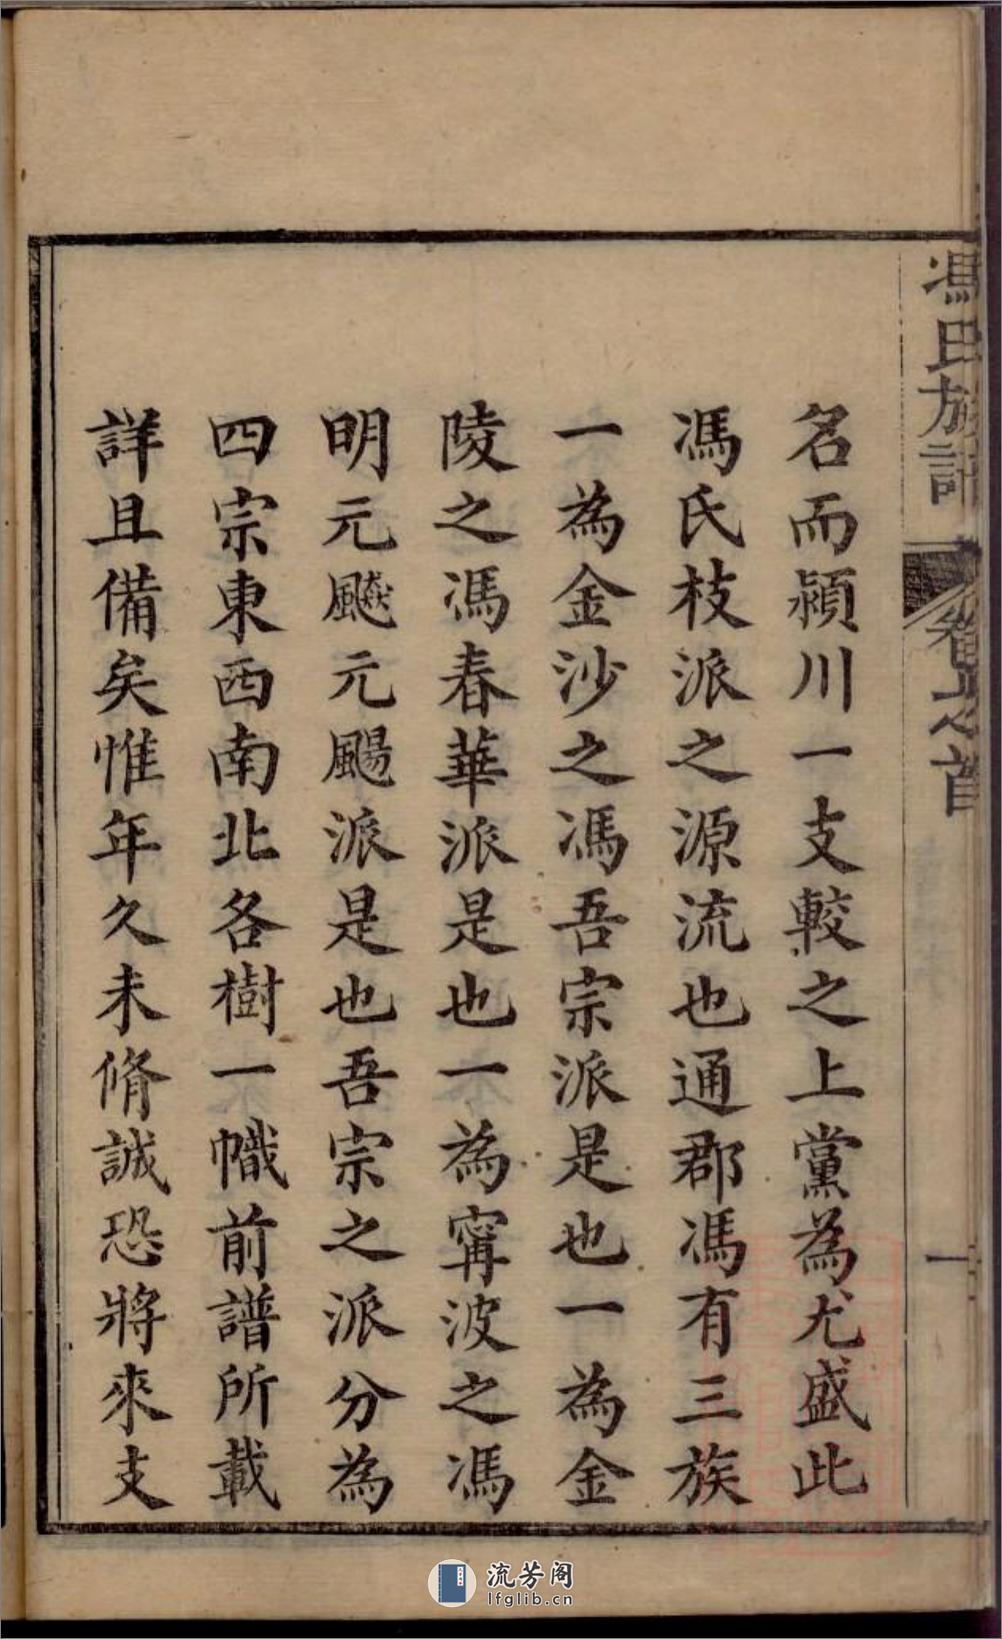 馮氏族譜 卷之首 一
名而潁川一支較之上黨為尤盛此
馮氏枝派之源流也通郡馮有三族
一為金沙之馮吾宗派是也一為金
陵之馮春華派是也一為甯波之馮
明元飈元颺派是也吾宗之派分為
四宗東西南北各樹一幟前譜所載
詳且備矣惟年久未脩誠恐將來支
流芳阁
lfglib.cn